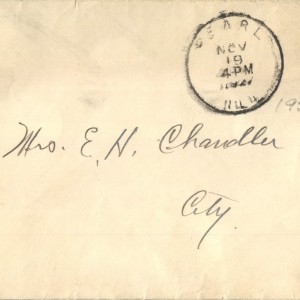 PEARL
NOV
19
4PM
ILL.
Mrs. E. H. Chandler
City.